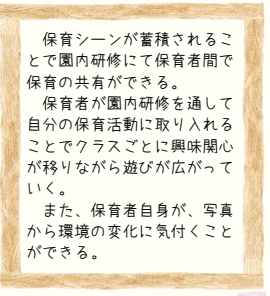 保育シーンが蓄積されるこ
とで園内研修にて保育者間で
保育の共有ができる。
　保育者が園内研修を通して
自分の保育活動に取り入れる
ことでクラスごとに興味関心
が移りながら遊びが広がって
いく。
　また、保育者自身が、写真
から環境の変化に気付くこと
ができる。